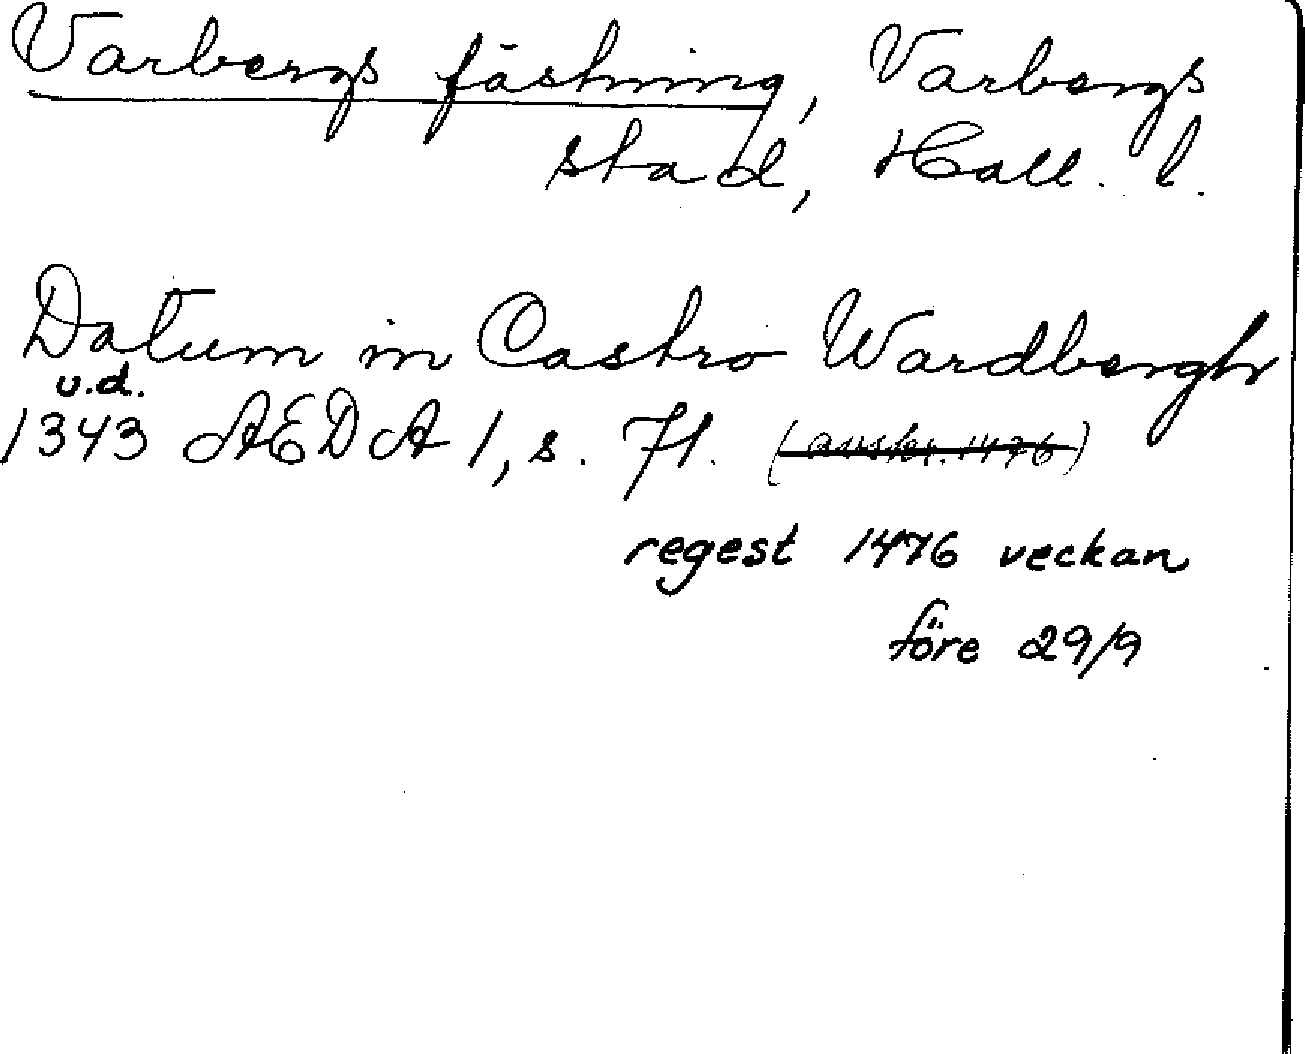 Varbergs fästning, Varbergs
stad, Hall. l.
Datum in Castro Wardbergh
u.d.
1343 AEDA 1, s. 71. (avskr. 1476)
regest 1476 veckan
före 29/9